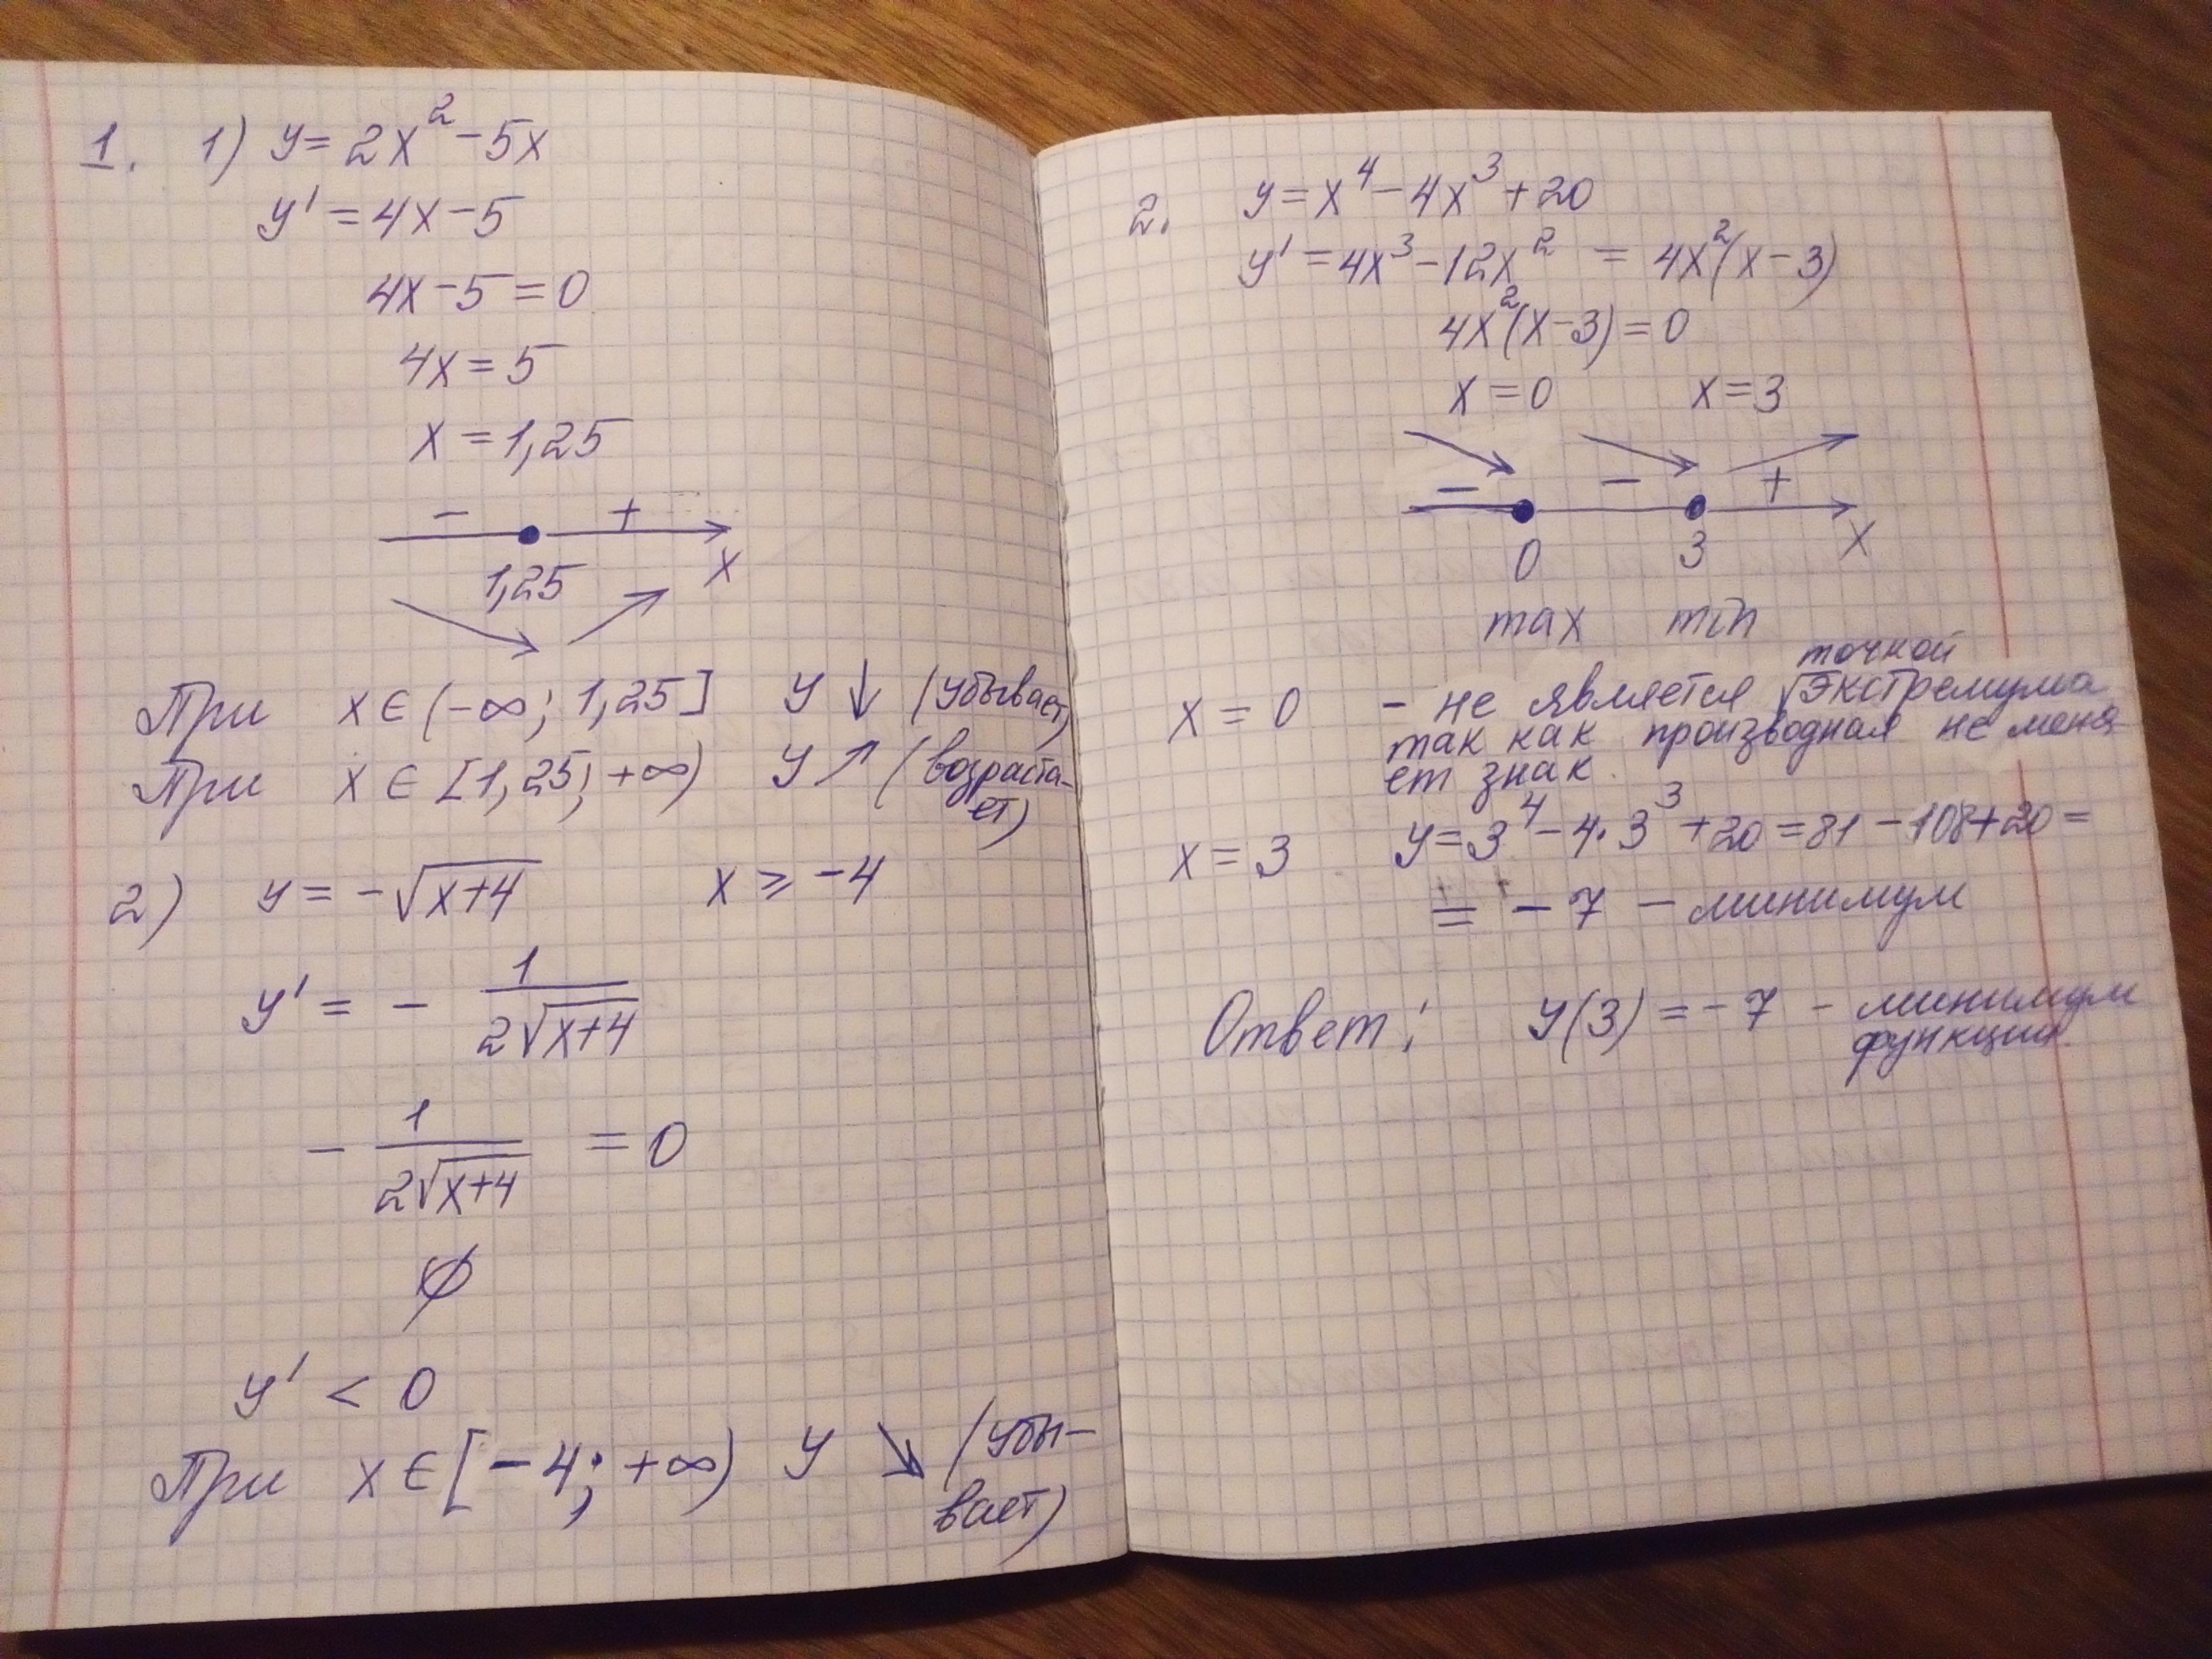 1. 1) y = 2x² - 5x
y' = 4x - 5
4x - 5 = 0
4x = 5
x = 1,25
- +
1,25 x
При x ∈ (-∞; 1,25] y ↓ (убывает)
При x ∈ [1,25; +∞) y ↗ (возраста-
ет)
2) y = -√(x+4) x ≥ -4
y' = - 1/(2√(x+4))
- 1/(2√(x+4)) = 0
∅
y' < 0
При x ∈ [-4; +∞) y ↘ (убы-
вает)
2. y = x⁴ - 4x³ + 20
y' = 4x³ - 12x² = 4x²(x - 3)
4x²(x - 3) = 0
x = 0 x = 3
- - +
0 3 x
max min
точкой
x = 0 - не является √экстремума
так как производная не меня
ет знак.
x = 3 y = 3⁴ - 4·3³ + 20 = 81 - 108 + 20 =
= -7 - минимум
Ответ: y(3) = -7 - минимум
функции.